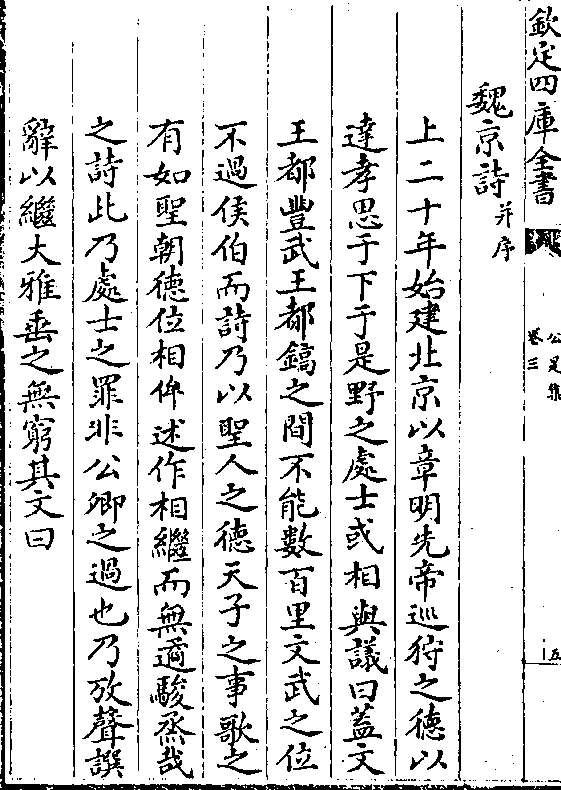 欽定四庫全書
公是集
卷三
五
魏京詩并序
上二十年始建北京以章明先帝巡狩之德以
達孝思于下于是野之處士或相與議曰蓋文
王都豐武王都鎬之間不能數百里文武之位
不過侯伯而詩乃以聖人之德天子之事歌之
有如聖朝德位相侔述作相繼而無遹駿烝哉
之詩此乃處士之罪非公卿之過也乃放聲譔
辭以繼大雅垂之無窮其文曰